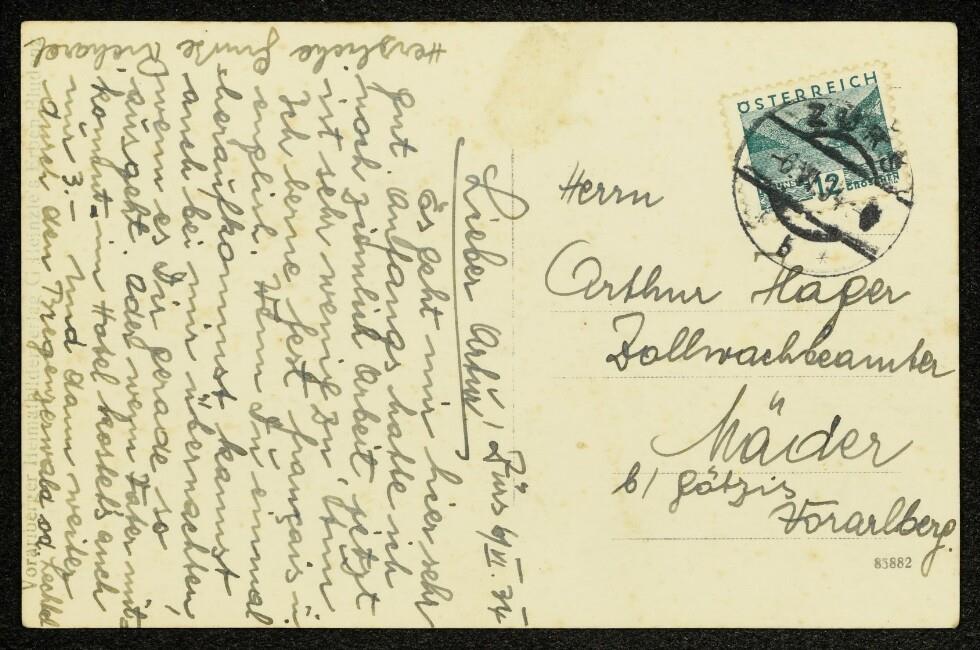 Lieber Artur!
Zürs 6/VII. 34
Es geht mir hier sehr
gut. Anfangs hatte ich
noch ziemlich Arbeit, jetzt
ist sehr wenig zu thun.
Ich lerne fest français u
englisch. Wenn Du einmal
heraufkommst kannst
auch bei mir übernachten,
wenn es Dir gerade so
ausgeht. Oder wenn Vater mit-
kommt - im Hotel kostets auch
nur 3.- Und dann weiter
durch den Bregenzerwald od. Lechtal
Herzliche Grüße Richard
ÖSTERREICH
12
GROSCHEN
Herrn
Arthur Hager
Zollwachbeamter
Mäder
b/ Götzis
Vorarlberg.
83882